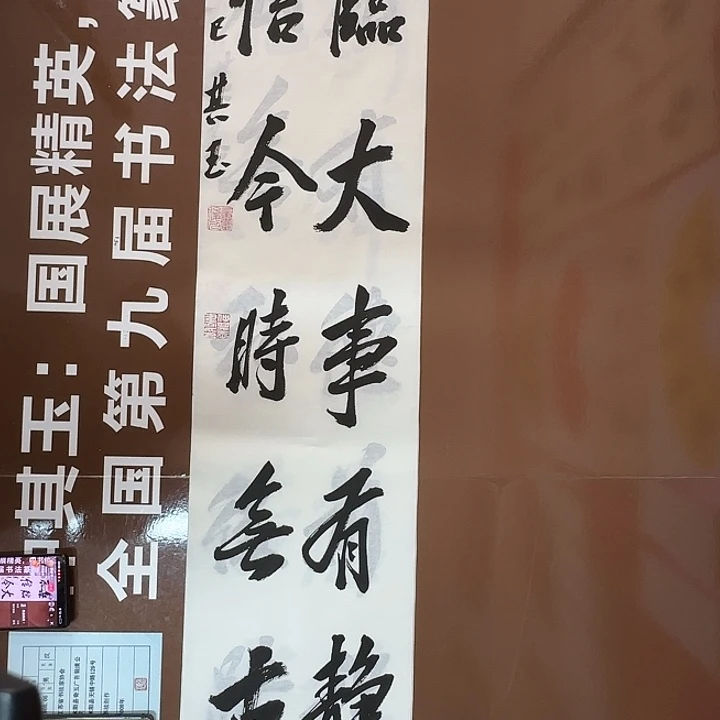 臨大事有静
信今時無古
巳其玉
其玉：国展精英，
全国第九届书法篆